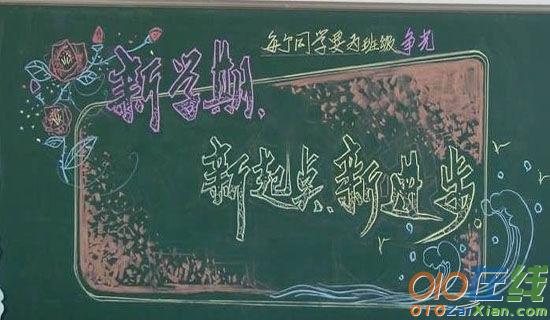 每个同学要为班级争光
新学期、
新起点、新进步
010在线
010zaiXian.com